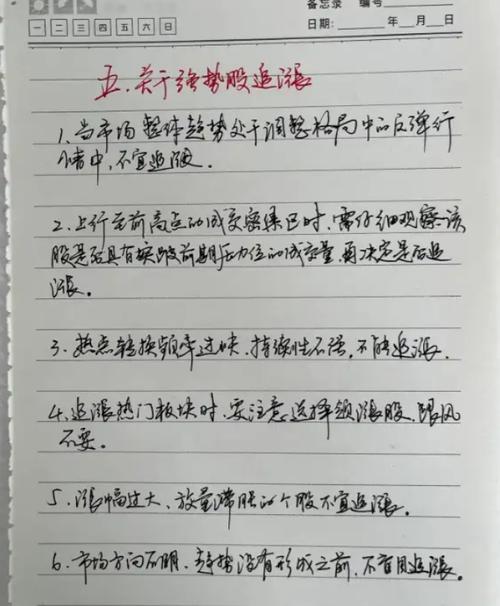 备忘录 编号
日期: 年 月 日
一 二 三 四 五 六 日
五.关于强势股追涨
1.当市场整体趋势处于调整格局中的反弹行
情中,不宜追涨.
2.上行至前高点的成交密集区时,需仔细观察该
股是否具有突破前期压力位的成交量,再决定是否追
涨。
3.热点转换频率过快,持续性不强,不能追涨.
4.追涨热门板块时,要注意选择领涨股,跟风
不要.
5.涨幅过大、放量滞胀的个股不宜追涨.
6.市场方向不明,趋势没有形成之前,不盲目追涨.